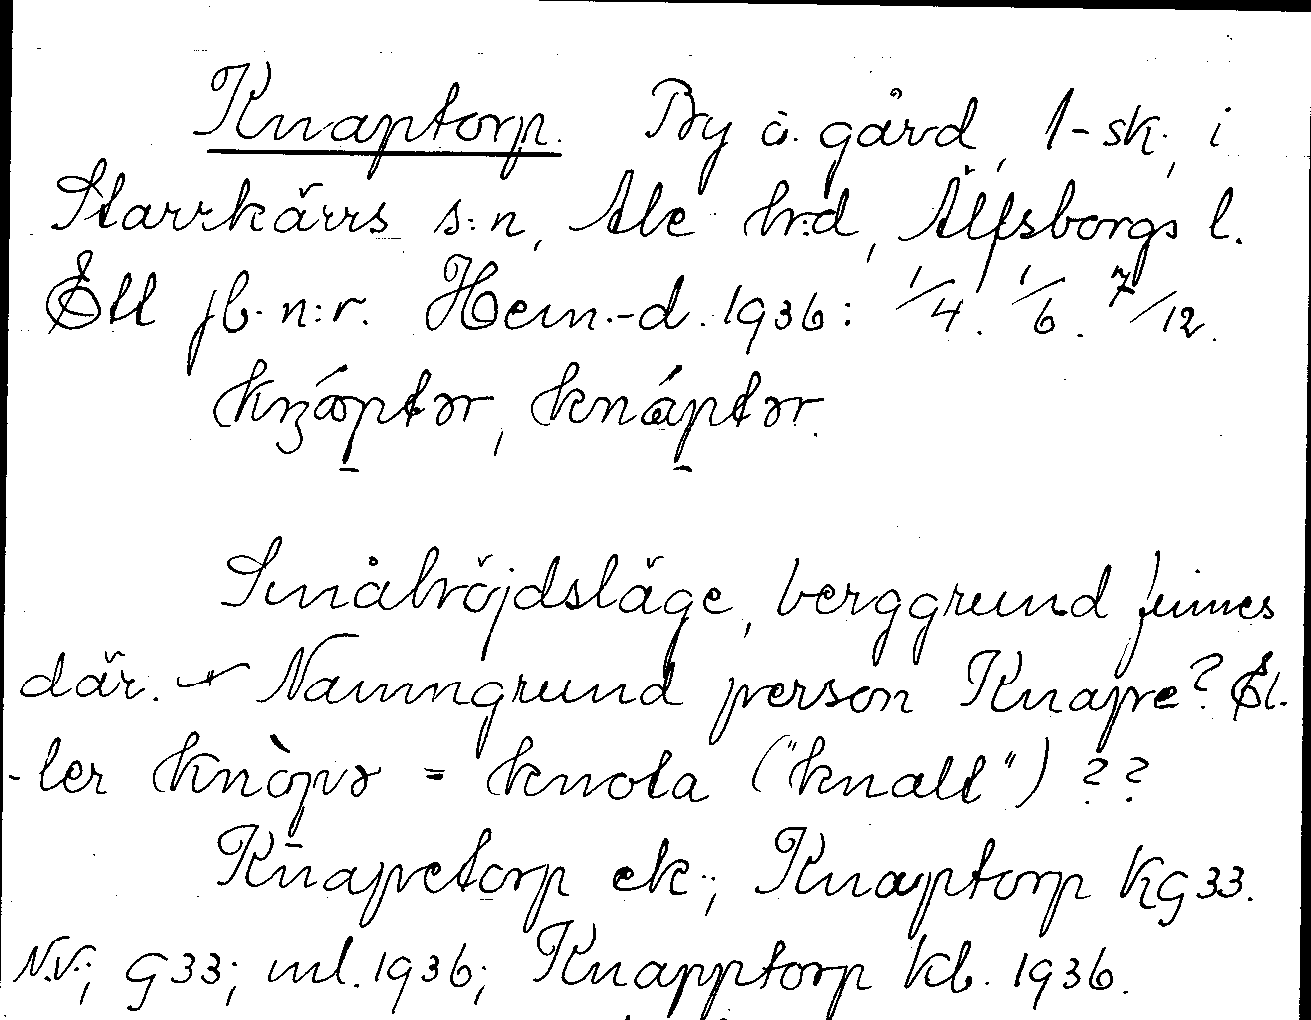 Knaptorp. By o. gård, 1-sk., i
Starrkärrs s:n, Ale h:d, Älfsborgs l.
Ett jb. n:r. Hem.-d. 1936: 1/4. 1/6. 7/12.
knáptər.
Småhöjdsläge, berggrund finnes
där. – Namngrund person Knape? El-
-ler = knota ("knall") ??
Knapetorp ek.; Knaptorp Kg 33.
N.V.; G33; ml. 1936; Knapptorp kb. 1936.